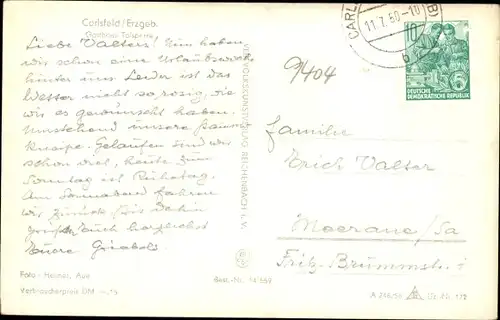 Carlsfeld/Erzgeb.
Gasthaus Talsperre
Liebe Valters! Nun haben
wir schon eine Urlaubswoche
hinter uns. Leider ist das
Wetter nicht so rosig, wie
wir es gewünscht haben.
Umstehend unsere
Kneipe. Gelaufen sind wir
schon viel, heute zum
Sonntag ist Ruhetag.
Am Sonnabend fahren
wir zurück. Bis dahin
grüßen Euch herzlichst
Eure Griebels
Foto - Heuner, Aue
Verbraucherpreis DM
VEB VOLKSKUNSTVERLAG REICHENBACH i. V.
Best.-Nr.
9/404
11.7.60-10
b
10
5
DEUTSCHE
DEMOKRATISCHE REPUBLIK
Familie
Erich Valter
Meerane/Sa
Fritz-Brummmstr.